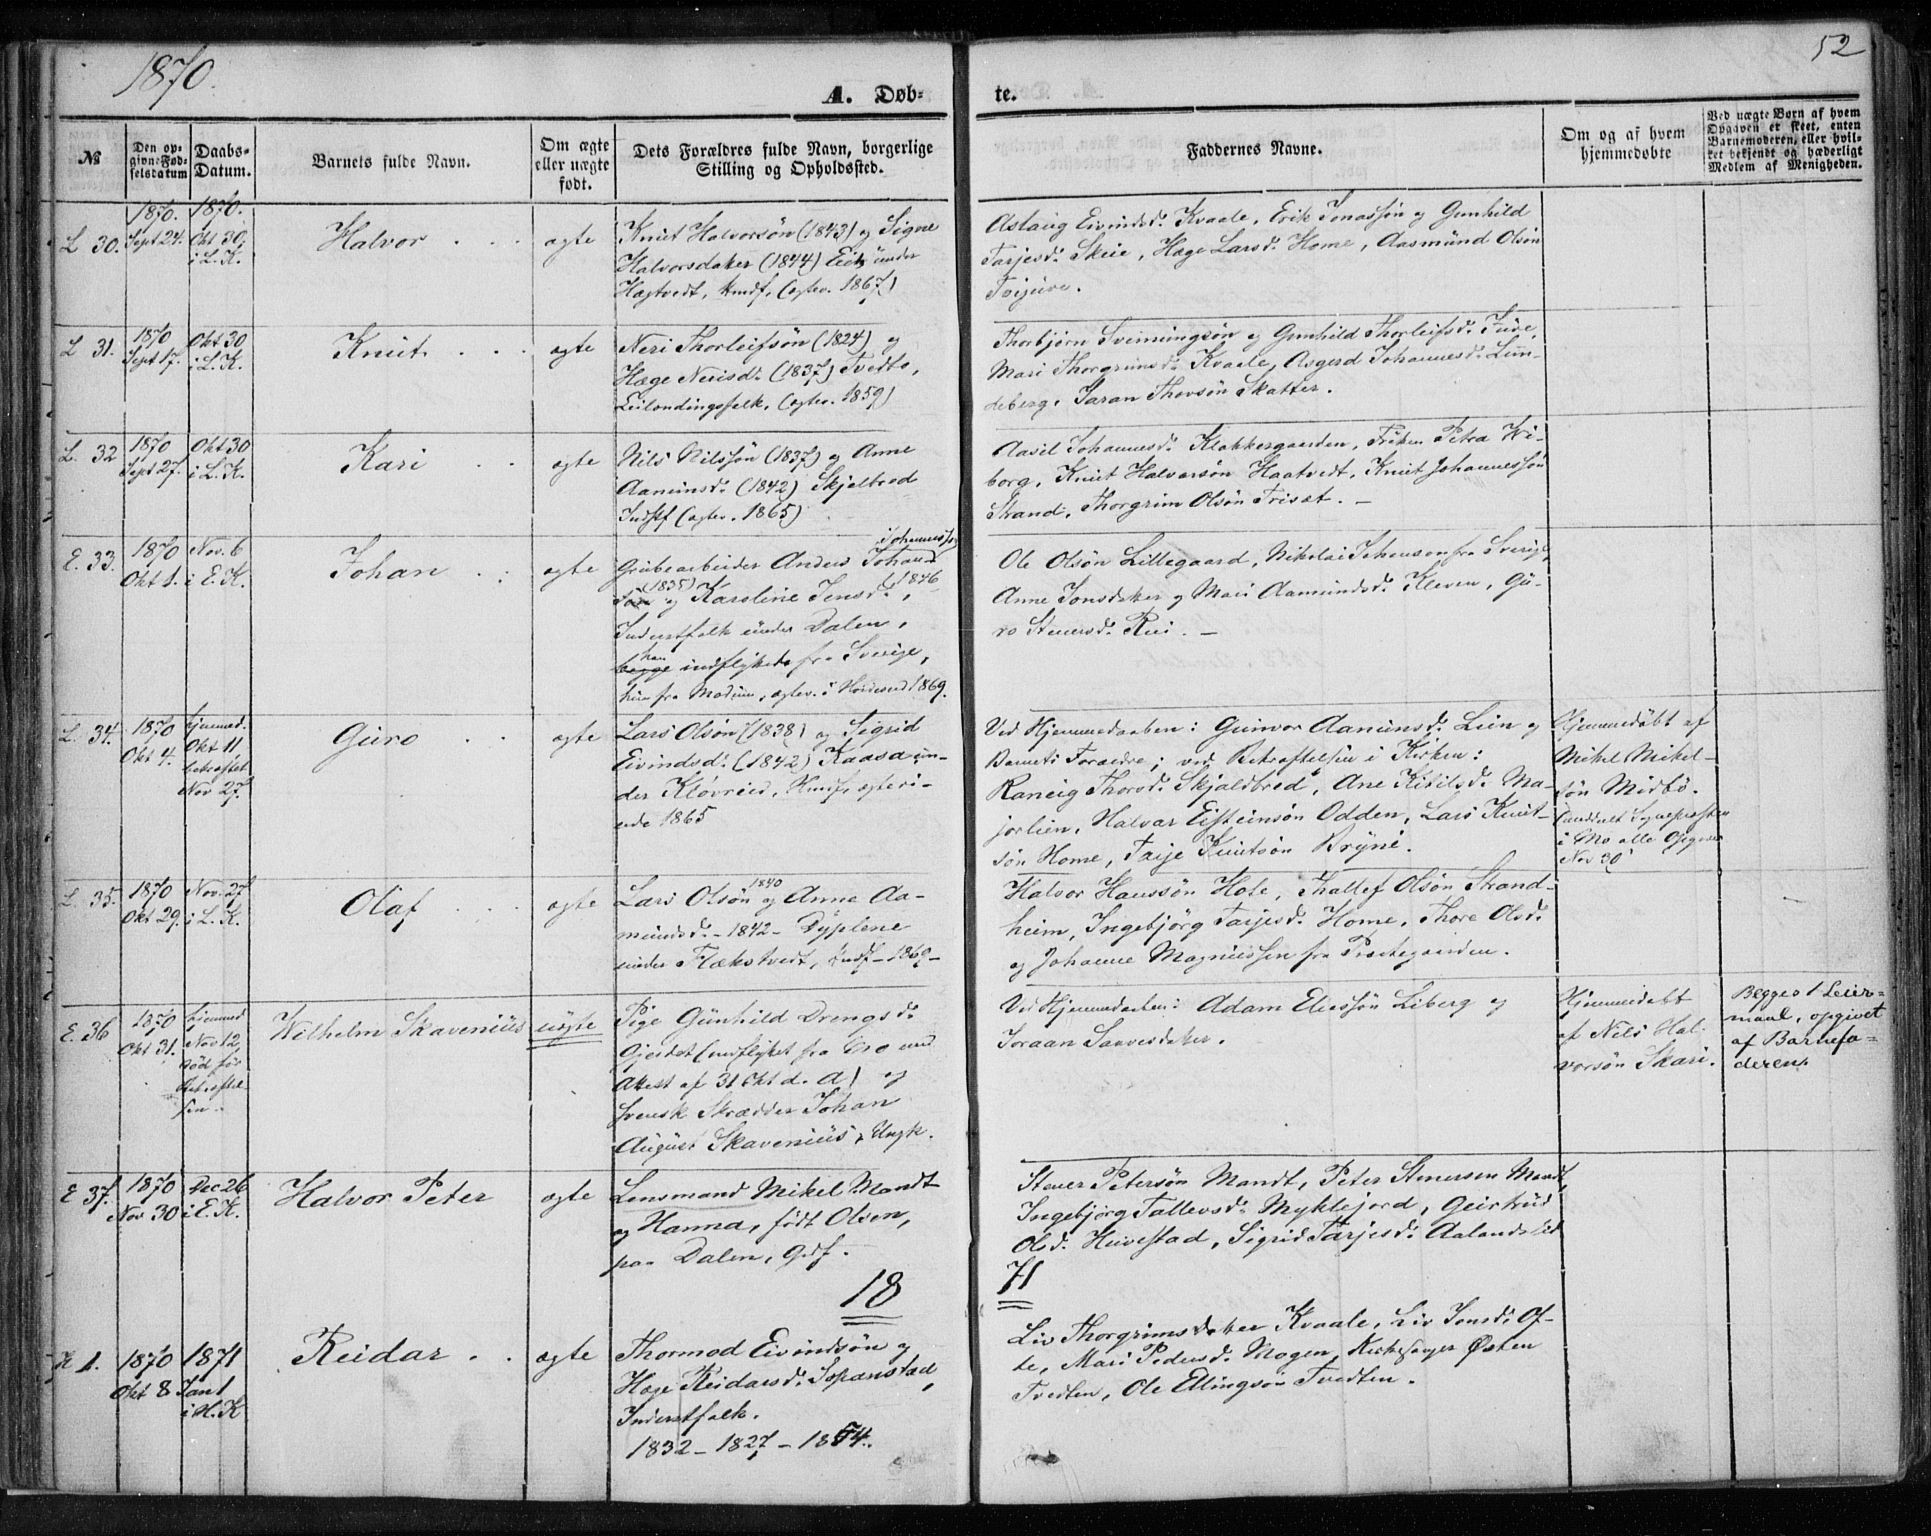 1870.
52
A. Døb-
te.
№
Den op-
givne Fød-
selsdatum
Daabs-
Datum.
Barnets fulde Navn.
Om ægte
eller uægte
født.
Dets Forældres fulde Navn, borgerlige
Stilling og Opholdssted.
Faddernes Navne.
Om og af hvem
hjemmedøbte
Ved uægte Børn af hvem
Opgaven er skeet, enten
Barnemoderen, eller hvil-
ket bekjendt og hæderligt
Medlem af Menigheden.
L 30.
1870.
Sept 24.
1870.
Okt 30,
i L. K.
Halvor
ægte
Knut Halvorsøn (1843) og Signe
Halvorsdater (1844) under
Hægtvedt, (ægtev. 1867)
Aslaug Eivindsd. Kvaale, Erik Jonassøn og Gunhild
Tarjesd. Skeie, Hæge Larsd. Home, Aasmund Olsøn
L 31.
1870
Sept 17.
Okt 30
i L. K.
Knut
ægte
Neri Thorleifsøn (1824) og
Hæge Nerisd. (1837) Tvedto,
Leilændingsfolk, (ægtev. 1859)
Thorbjørn Svenningsøn og Gunhild Thorleifsd. Juve,
Mari Thorgrimsd. Kvaale, Asgerd Johannesd. Lun-
deberg, Taran Thovsøn Skatter.
L. 32
1870
Sept 27.
Okt 30
i L. K.
Kari
ægte
Nils Nilssøn (1837) og Anne
Aamunsd. (1842) Skjelbred
Indstf (ægtev. 1865)
Aasil Johannesd. Klokkergaarden, Frøken Petra Wi-
borg, Knut Halvorsøn Haatvedt, Knut Johannessøn
Strand, Thorgrim Olsøn Trisæt. –
E. 33.
1870
Okt 1.
Nov. 6
i E. K.
Johan
ægte
Johannessøn
Grubearbeider Anders Johans
(1835) (1846
Søn og Karoline Jensd.,
Inderstfolk under Dalen,
han
begge indflyttede fra Sverige,
hun fra Modum, ægtev. i 1869.
Ole Olsøn Lillegaard, Nikolai Johansen fra Sverige,
Anne Jonsdater og Mari Aamundsd. Kleven, Gu-
ro Stenersd. Rui. –
L. 34.
1870
Okt 4.
hjemmed.
Okt 11
bekræftet
Nov 27.
Guro
ægte
Lars Olsøn (1838) og Sigrid
Eivindsd. (1842) Kaasa un-
der Kløvreid, Hmdf, ægtevi-
ede 1865
Ved Hjemmedaaben: Gunvor Aamunsd. Lien og
Barnets Forældre; ved Bekræftelsen i Kirken:
Raneig Thorsd. Skjaldbred, Ane Kitilsd. Ma-
jorlien, Halvar Eisteinsøn Odden, Lars Knut-
søn Home, Tarje Knutsøn Bryne.
Hjemmedøbt af
Mikel Mikel-
søn Midbø.
i Mo
Nov 30
L 35.
1870
Okt 29.
Nov. 27
i L. K.
Olaf
ægte
Lars Olsøn 1840 og Anne Aa-
mundsd. – 1842 – Dyplene
under Flækstvedt, Indf – 1869 –
Halvor Hanssøn Hole, Thallef Olsøn Strand-
heim, Ingebjørg Tarjesd. Home, Thore Olsd.
og Johanne Magnussen fra Præstegaarden.
E. 36
1870
Okt 31.
hjemmed
Nov 12,
død før
Bekræftel-
sen.
Wilhelm Skavenius
uægte
Pige Gunhild Drengsd.
Gjerdet (indflyttet fra Mo med
Attest af 31 Okt d. A) og
svensk Skrædder Johan
August Skavenius, Ungk.
Ved Hjemmedaaben: Adam Eliessøn Liberg og
Joraan Saavesdater.
Hjemmedøbt
af Nils Hal-
vorsøn Skari.
Begges 1 Leier-
maal, opgivet
af Barnefa-
deren.
E 37.
1870
Nov 30
Dec 26
i E. K.
Halvor Peter
ægte
Lensmand Mikel Mandt
og Hanna, født Olsen,
paa Dalen, Gdf.
Stener Petersøn Mandt, Peter Stenersen Mandt,
Ingebjørg Tallevsd. Myklejord, Geirtrud
Olsd. Huvestad, Sigrid Tarjesd. Aalandslid
18
71
H 1.
1870
Okt 8
1871
Jan 1
i H. K
Reidar
ægte
Thormod Eivindsøn og
Hæge Reidarsd. Ispanstad,
Inderstfolk.
1832 – 1827 – 1854.
Liv Thorgrimsdater Kvaale, Liv Jonsd. Of-
te, Mari Pedersd. Mogen, Kirkesanger Østen
Tvedten, Ole Ellingsøn Tvedten.